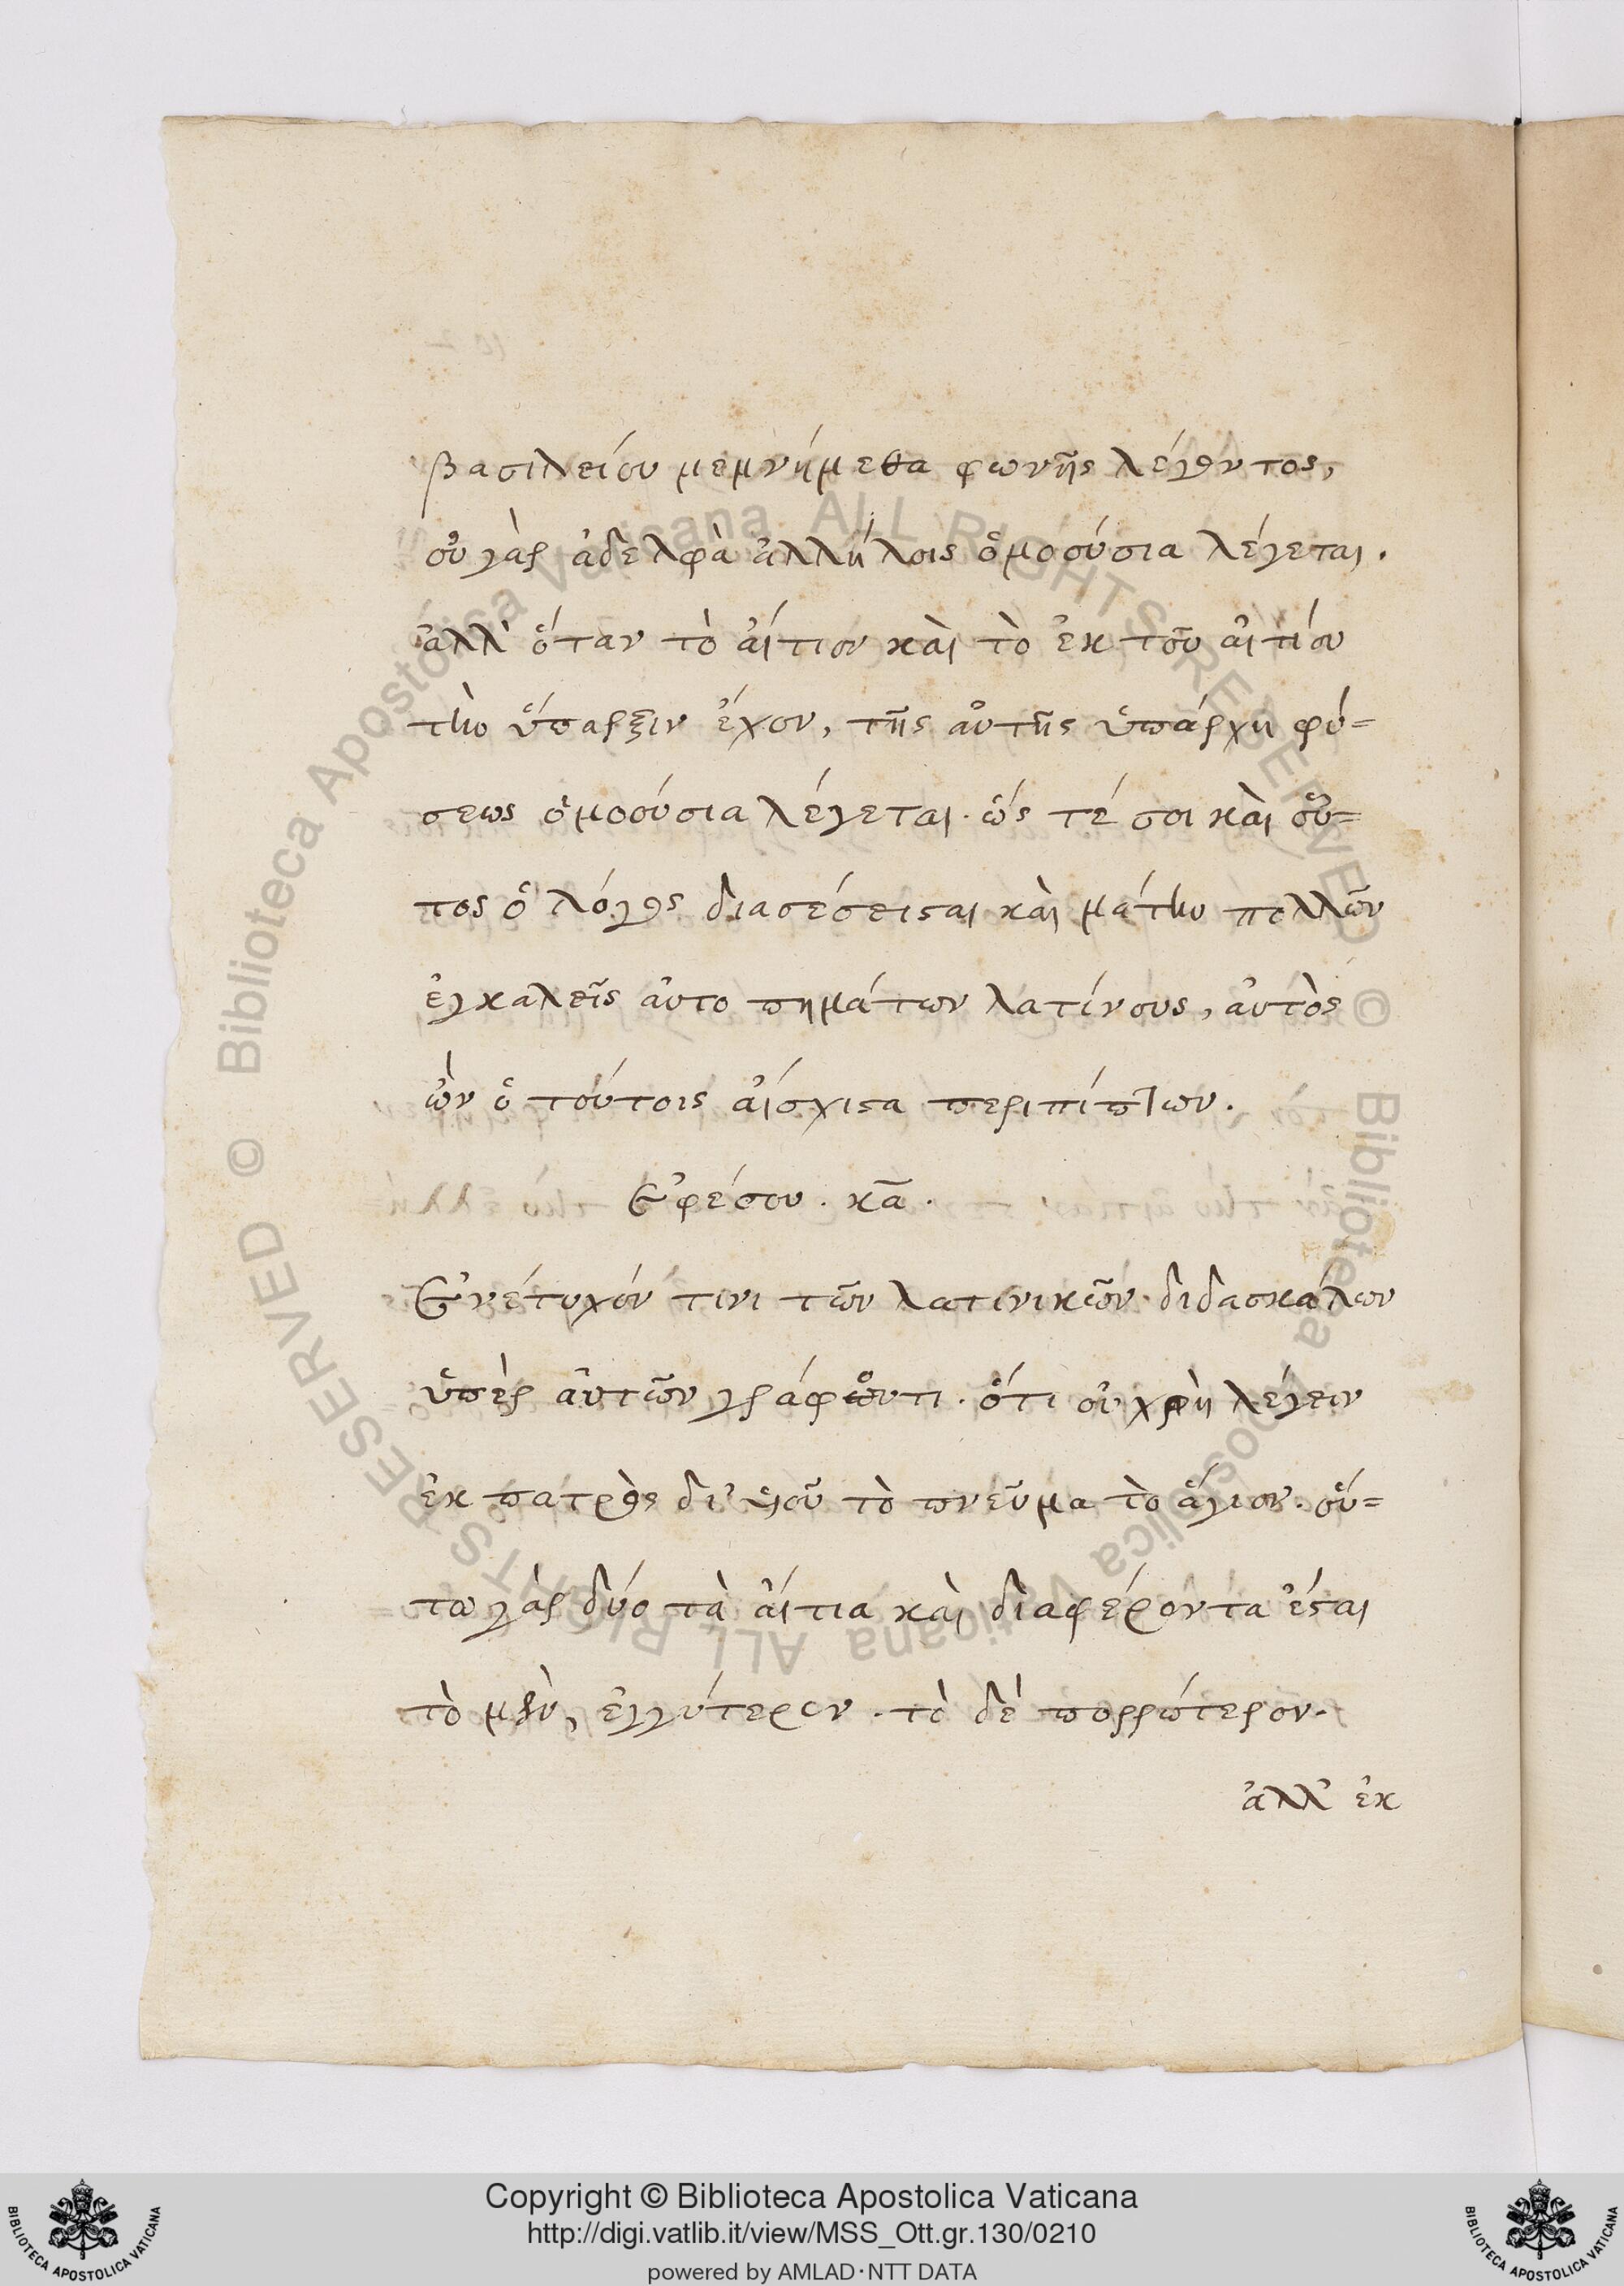 βασιλείου μεμνήμεθα φωνῆς λέγοντος,
οὐ γὰρ ἀδελφὰ ἀλλήλοις ὁμοούσια λέγεται.
ἀλλ' ὅταν τὸ αἴτιον καὶ τὸ ἐκ τοῦ αἰτίου
τὴν ὕπαρξιν ἔχον, τῆς αὐτῆς ὑπάρχη φύ=
σεως ὁμοούσια λέγεται. ὥς τέ σοι καὶ οὗ=
τος ὁ λόγος διασέσεισται καὶ μάτην πολλῶν
ἐγκαλεῖς ἀυτο πημάτων λατίνους, ἀυτὸς
ὢν ὁ τούτοις αἴσχιστα περιπίπτων.
Ἐφέσου. κα.
Ἐνέτυχόν τινι τῶν λατινικῶν διδασκάλων
ὑπὲρ ἀυτῶν γράφοντι. ὅτι οὐ χρὴ λέγειν
ἐκ πατρὸς δι' υἱοῦ τὸ πνεῦμα τὸ ἅγιον. οὕ=
τω γὰρ δύο τὰ αἴτια καὶ διαφέροντα ἔσται
τὸ μὲν, ἐγγύτερον. τὸ δὲ πορρώτερον.
ἀλλ' ἐκ
Copyright © Biblioteca Apostolica Vaticana
http://digi.vatlib.it/view/MSS_Ott.gr.130/0210
powered by AMLAD·NTT DATA
BIBLIOTECA APOSTOLICA VATICANA
BIBLIOTECA APOSTOLICA VATICANA
© Biblioteca Apostolica Vaticana ALL RIGHTS RESERVED
© Biblioteca Apostolica Vaticana ALL RIGHTS RESERVED